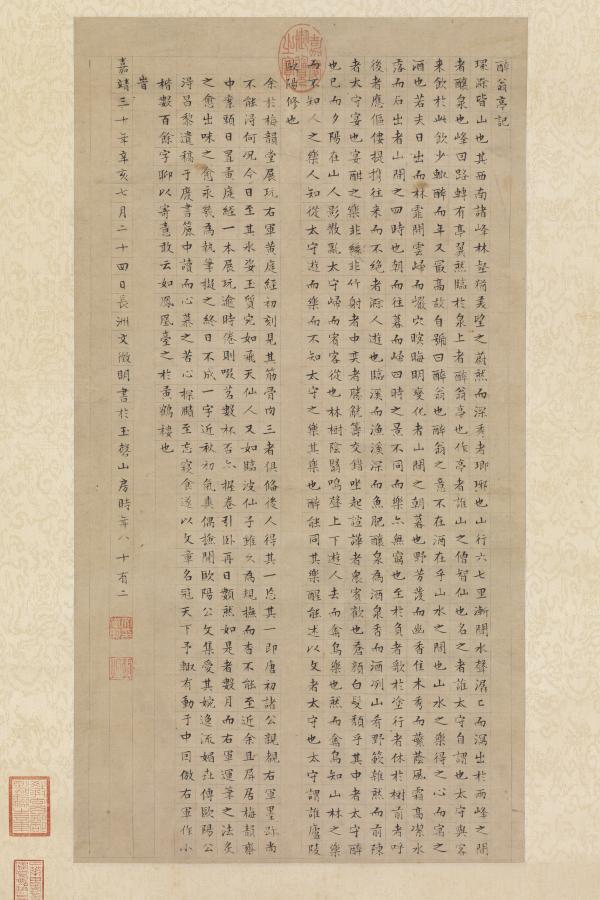 醉翁亭記
環滁皆山也其西南諸峰林壑猶美望之蔚然而深秀者瑯琊也山行六七里漸聞水聲潺〻而瀉出於兩峰之間
者釀泉也峰回路轉有亭翼然臨於泉上者醉翁亭也作亭者誰山之僧智仙也名之者誰太守自謂也太守與客
來飲於此飲少輒醉而年又最高故自號曰醉翁也醉翁之意不在酒在乎山水之間也山水之樂得之心而寓之
酒也若夫日出而林霏開雲歸而巖穴暝晦明變化者山間之朝暮也野芳發而幽香佳木秀而蘩蔭風霜高潔水
落而石出者山間之四時也朝而往暮而歸四時之景不同而樂亦無窮也至於負者歌於塗行者休於樹前者呼
後者應傴僂提攜往來而不絕者滁人遊也臨溪而漁溪深而魚肥釀泉為酒泉香而酒冽山肴野蔌雜然而前陳
者太守宴也宴酣之樂非絲非竹射者中奕者勝觥籌交錯坐起諠譁者衆賓歡也蒼顏白髮頹乎其中者太守醉
也已而夕陽在山人影散亂太守歸而賓客從也林樹陰翳鳴聲上下遊人去而禽鳥樂也然而禽鳥知山林之樂
而不知人之樂人知從太守遊而樂而不知太守之樂其樂也醉能同其樂醒能述以文者太守也太守謂誰廬陵
歐陽修也
余於梅韻堂展玩右軍黃庭經初刻見其筋骨肉三者俱備後人得其一忘其一即唐初諸公親覩右軍墨跡尚
不能得何況今日至其冰姿玉質宛如飛天仙人又如臨波仙子雖久為規橅而杳不能至近余且屏居梅韻齋
中摩頤日置黃庭經一本展玩逾時倦則啜茗數杯否亦握卷引卧再日數然如是者數月而右軍運筆之法炙
之愈出味之愈永幾為執筆擬之終日不成一字近秋初氣爽偶撿閱歐陽公文集愛其婉逸流媚並傳歐陽公
得昌黎遺稿于廢書簏中讀而心慕之苦心探賾至忘寢食遂以文章名冠天下予輒有動于中因倣右軍作小
楷數百餘字聊以寄意敢云如鳳凰臺之於黃鶴樓也
嘉靖三十年辛亥七月二十四日長洲文徵明書於玉磬山房時年八十有二
嘉慶御覽之寶